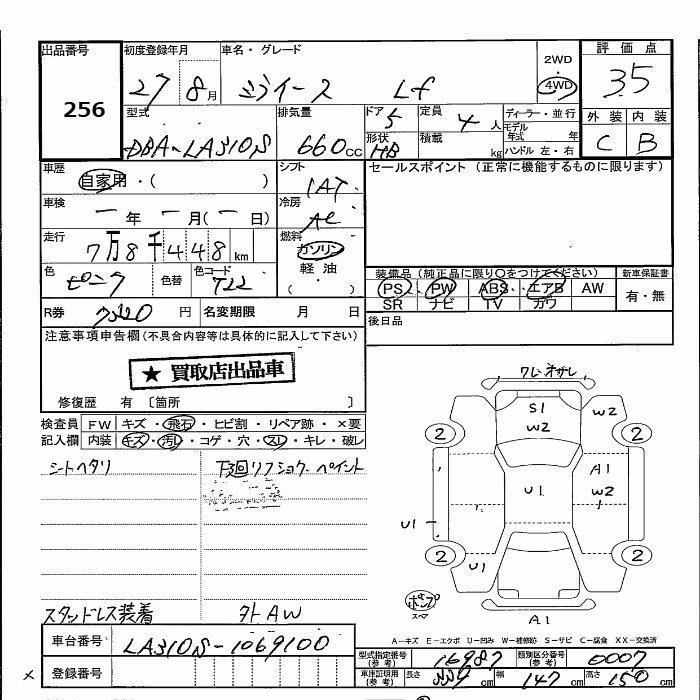 出品番号 初度登録年月 車名・グレード 2WD 評価点
256 27 8月 ミライース Lf 4WD 3.5
型式 排気量 ドア 5 定員 4人 ディーラー・並行 外装 内装
DBA-LA310S 660cc 形状 HB 積載 kg モデル年式 年 ハンドル 左・右 C B
車歴 自家用・( ) シフト IAT セールスポイント(正常に機能するものに限ります)
車検 一年 一月(一日) 冷房 AC
走行 7万8千448km 燃料 ガソリン
色 ピンク 色替 色コード T22 軽油 ( ・ )
装備品(純正品に限り○をつけてください) 新車保証書
PS PW ABS エアB AW 有・無
SR ナビ TV カワ
R券 円 名変期限 月 日 後日品
注意事項申告欄(不具合内容等は具体的に記入して下さい)
★買取店出品車
修復歴 有〔箇所 〕
検査員 FW キズ・飛石・ヒビ割・リペア跡・×要
記入欄 内装 キズ・汚レ・コゲ・穴・スレ・キレ・破レ
シートヘタリ 下回リフショク ペイント
スタッドレス装着 外AW
S1
W2 W2
2 2
A1
U1 W2
U1
2 2
U1
A1
A−キズ E−エクボ U−凹み W−補修跡 S−サビ C−腐食 XX−交換済
車台番号 LA310S-1069100
登録番号
型式指定番号(参考) 16987 類別区分番号(参考) 0007
車庫証明用(参考) 長さ 339cm 幅 147cm 高さ 150cm